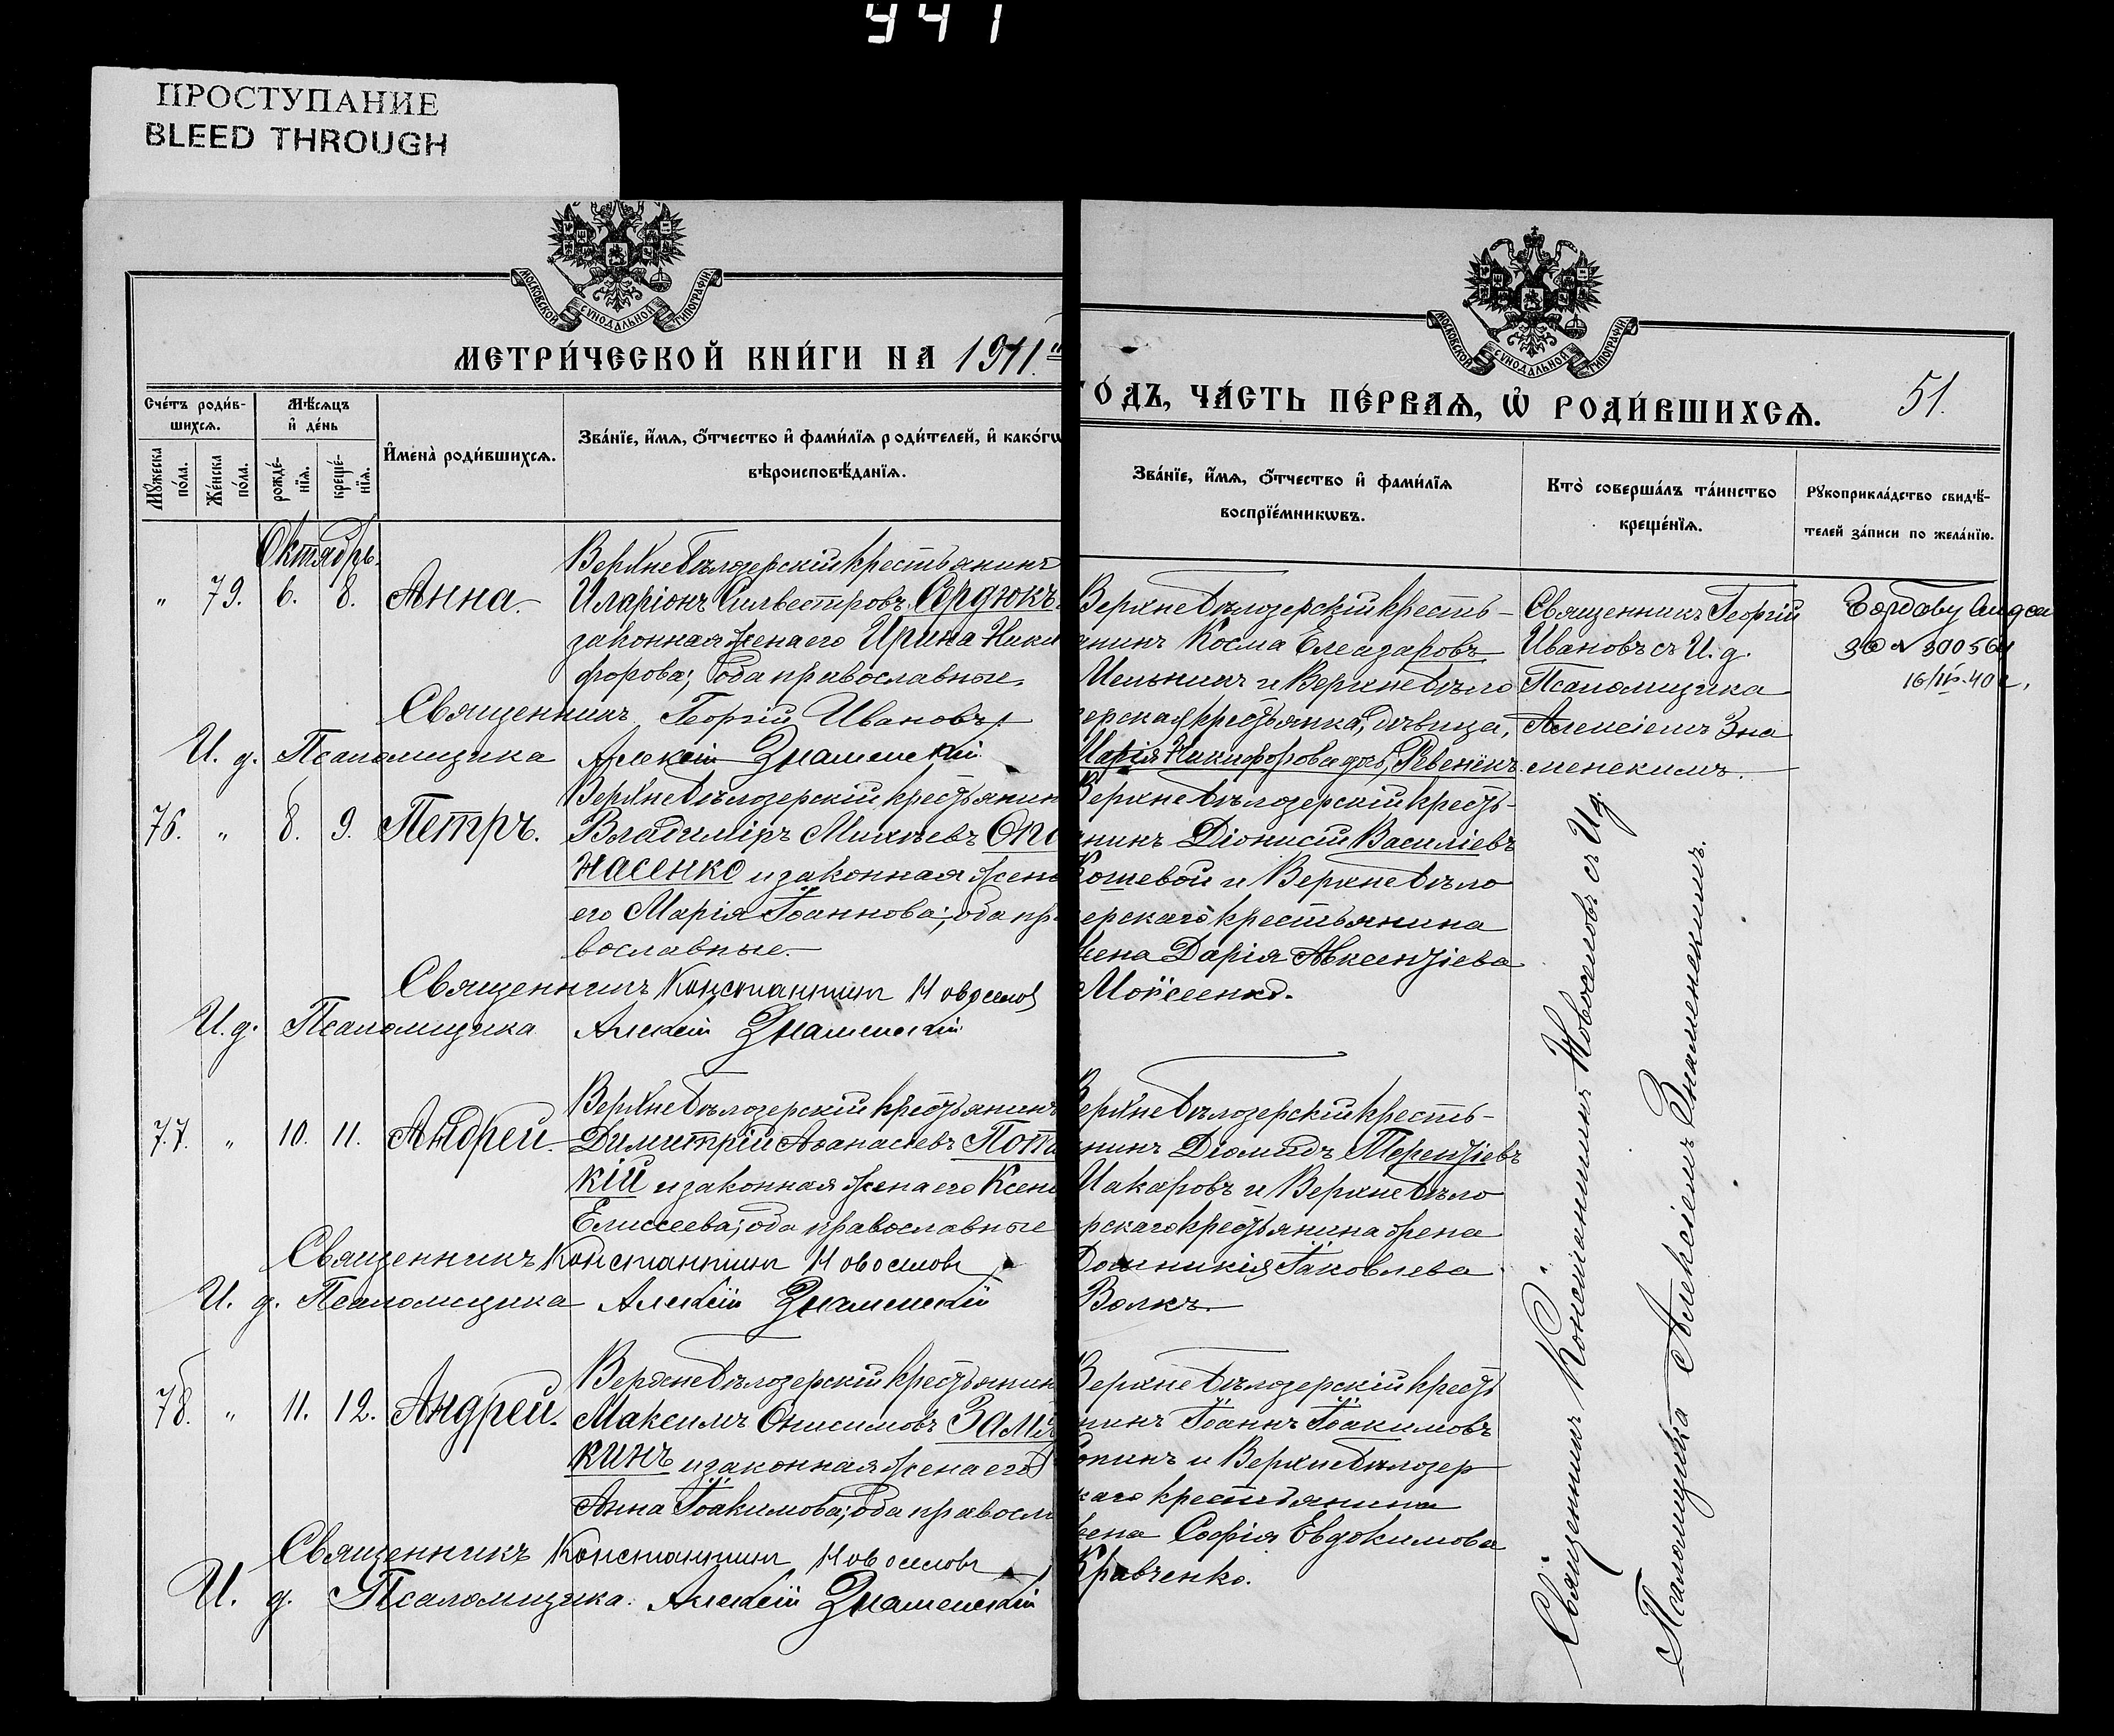 941
ПРОСТУПАНИЕ
BLEED THROUGH
МОСКОВСКОЙ СУНОДАЛЬНОЙ ТИПОГРАФІИ
МОСКОВСКОЙ СУНОДАЛЬНОЙ ТИПОГРАФІИ
МЕТРИ́ЧЕСКОЙ КНИ́ГИ НА 1911.
ГО́ДЪ, ЧА́СТЬ ПЕ́РВАѦ, Ѽ РОДИ́ВШИХСѦ.
51.
Сче́тъ роди́в-
шихсѧ.
Мѣ́сѧцъ
и҆ де́нь
Мꙋ́жеска по́ла.
Же́нска по́ла.
рожде́-нїѧ.
креще́-нїѧ.
И҆мена̀ роди́вшихсѧ.
Зва́нїе, и҆́мѧ, ѻ҆́тчество и҆ фами́лїѧ роди́телей, и҆ како́гѡ
вѣроисповѣ́данїѧ.
Зва́нїе, и҆́мѧ, ѻ҆́тчество и҆ фами́лїѧ
воспрїе́мникѡвъ.
Кто̀ соверша́лъ та́инство
креще́нїѧ.
Рꙋкоприкла́дство свидѣ́-
телей за́писи по жела́нїю.
Октябрь.
" 79. 6. 8. Анна.
Верхнебѣлозерскій крестьянинъ
Иларіонъ Силвестровъ Сердюкъ
законная жена его Ирина Ники
форова; оба православные.
Священникъ Георгій Ивановъ
И. д. Псаломщика Алексій Знаменскій
Верхнебѣлозерскій кресть-
янинъ Косма Елеазаровъ
Мельникъ и Верхнебѣло
зерская крестьянка, дѣвица,
Марія Никифорова дочь, Ревенекъ.
Священникъ Георгій
Ивановъ съ И. д.
Псаломщика
Алексіемъ Зна
менскимъ.
300564
16/IV-40
76. " 8. 9. Петръ.
Верхнебѣлозерскій крестьянин
Владиміръ Михѣевъ Опо
насенко и законная жена
его Марія Іоаннова; оба пра
вославные.
Священникъ Константин Новоселов
И. д. Псаломщика Алексій Знаменскій
Верхнебѣлозерскій кресть-
янинъ Діонисій Василіевъ
Кошевой и Верхнебѣло
зерскаго крестьянина
жена Дарія Авксентіева
Моисеенко.
Священникъ Константинъ Новоселовъ съ И. д.
Псаломщика Алексіемъ Знаменскимъ.
77. " 10. 11. Андрей.
Верхнебѣлозерскій крестьянинъ
Димитрій Аѳанасіевъ Пота
кій и законная жена его Ксенія
Елиссеева; оба православные
Священникъ Константин Новоселовъ
И. д. Псаломщика Алексій Знаменскій
Верхнебѣлозерскій кресть-
янинъ Діомидъ Терентіевъ
Макаровъ и Верхнебѣло
зерскаго крестьянина жена
Домникія Іаковлева
Волкъ.
78. " 11. 12. Андрей.
Верхнебѣлозерскій крестьянин
Максимъ Онисимовъ Замя
кинъ и законная жена его
Анна Іоакимова; оба правосла
Священникъ Константин Новоселовъ
И. д. Псаломщика Алексій Знаменскій
Верхнебѣлозерскій кресть
янинъ Іоаннъ Іоакимовъ
и Верхнебѣлозер
скаго крестьянина
жена Софія Евдокимова
Кравченко.